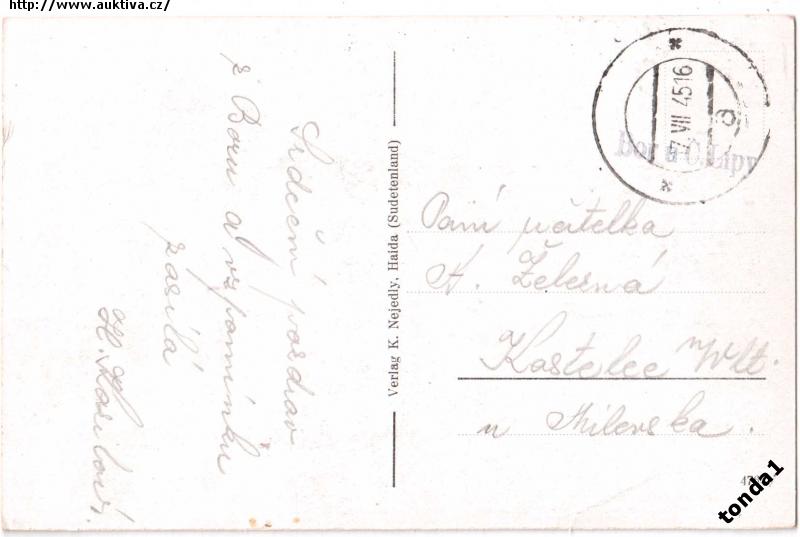 http://www.auktiva.cz/
Srdečný pozdrav
z Boru a vzpomínku
zasílá
H.
Verlag K. Nejedly, Haida (Sudetenland)
7 VII 45 16
a
Bor u Č. Lípy
Paní učitelka
A. Železná
Kostelec Vlt.
u Milevska.
tonda1